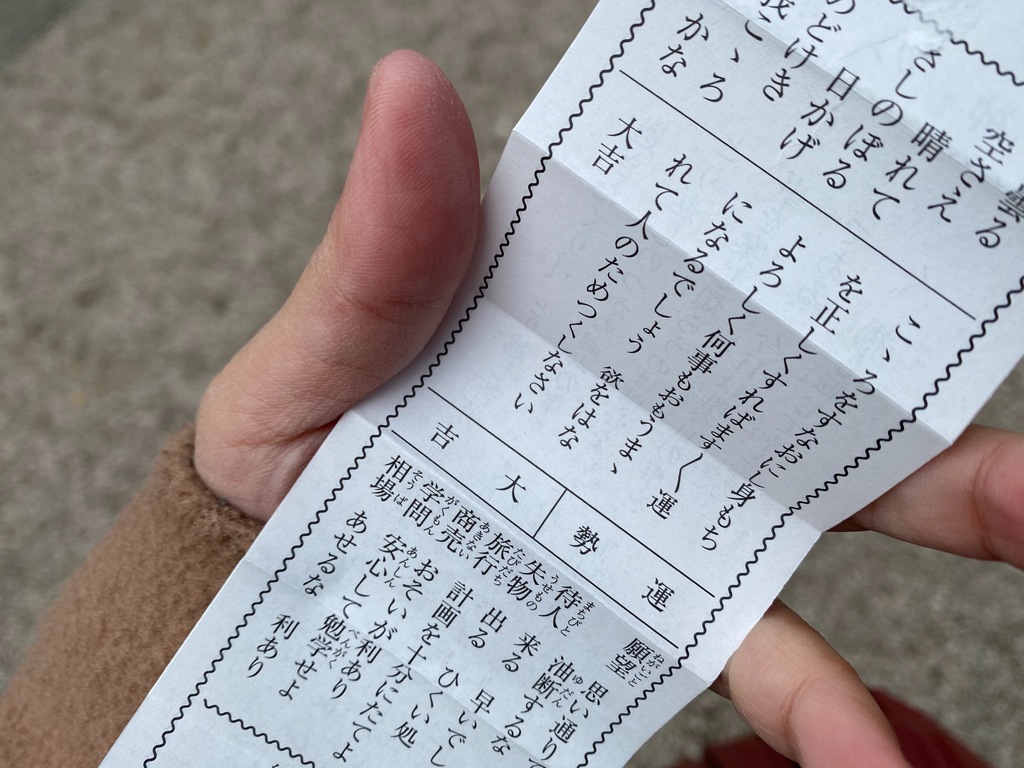 曇る
空さえ
晴れて
さしのぼる
日かげ
のどけき
我こゝろ
かな
こゝろをすなおにし身もち
を正しくすればます〱運
よろしく何事もおもうまゝ
になるでしょう 欲をはな
れて人のためつくしなさい
大吉
運勢
大吉
願望 思い通り
油断するな
待人 来る 早いでし
失物 出る ひくい処
旅行 計画を十分にたてよ
商売 おそいが利あり
学問 安心して勉学せよ
相場 あせるな 利あり